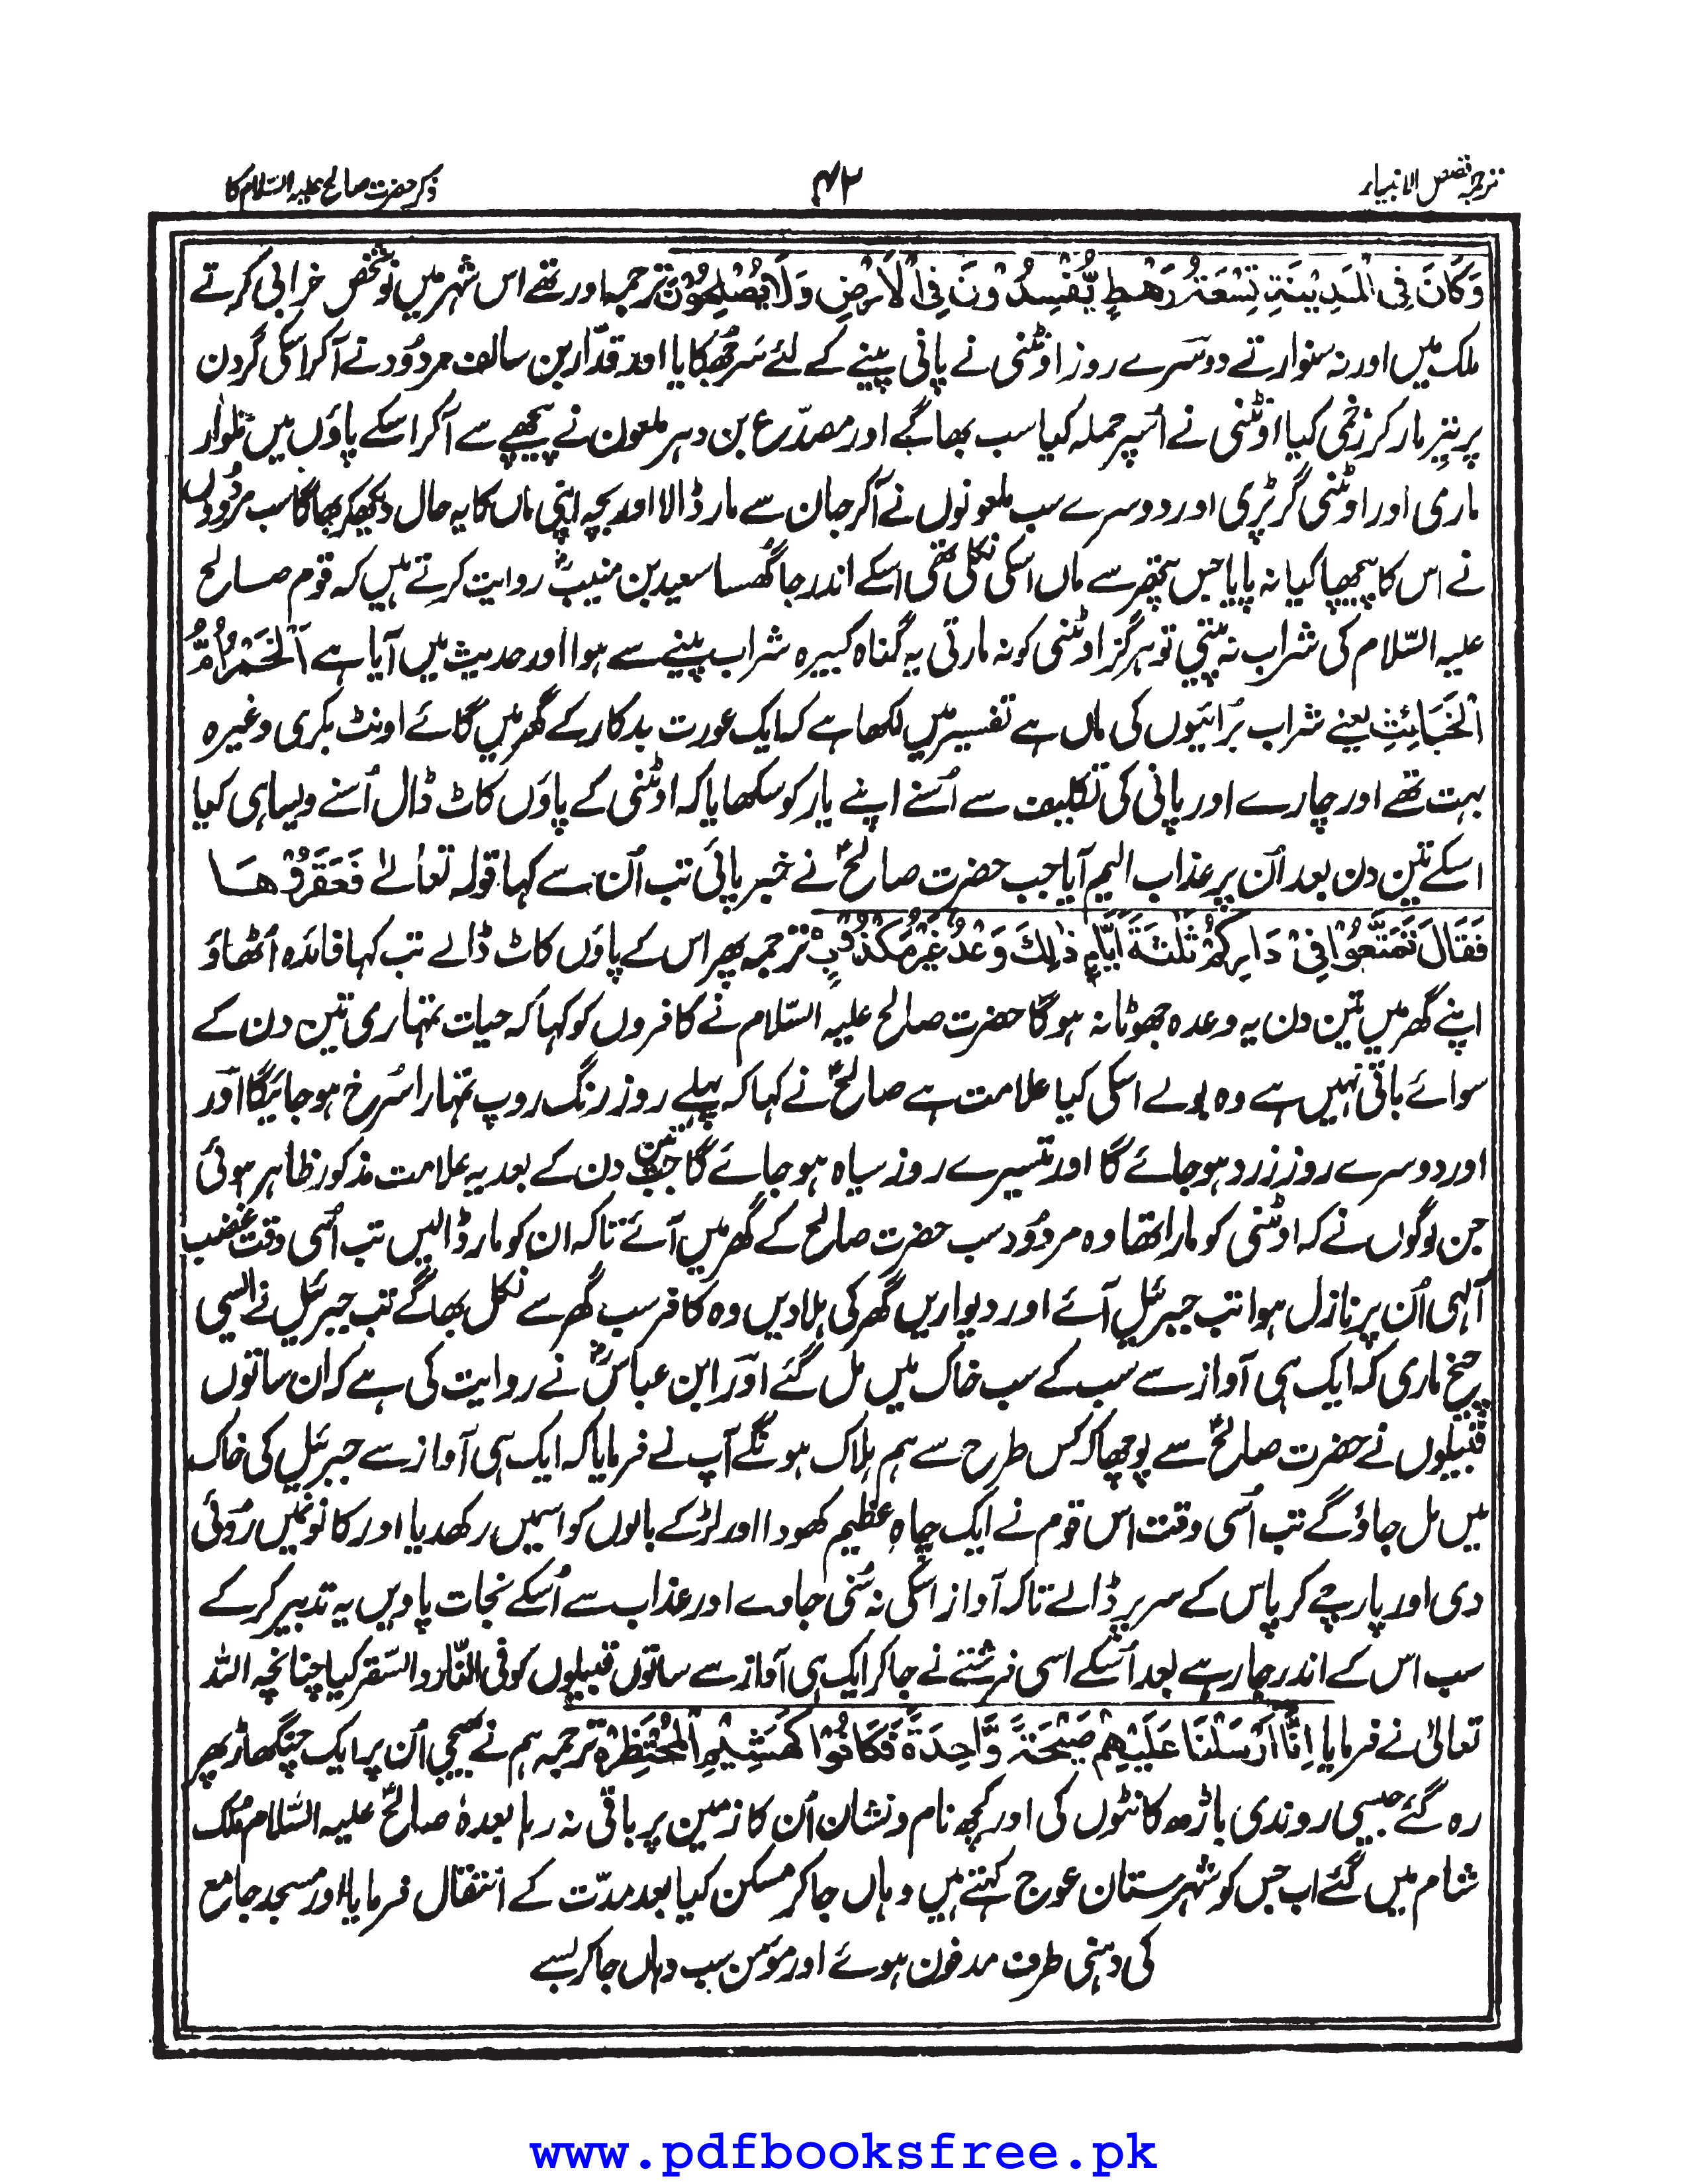 ترجمہ قصص الانبیاء
۴۲
ذکر حضرت صالح علیہ السّلام کا
وَكَانَ فِى الْمَدِيْنَةِ تِسْعَةُ رَهْطٍ يُّفْسِدُوْنَ فِى الْاَرْضِ وَلَا يُصْلِحُوْنَ ترجمہ اور تھے اس شہر میں نو شخص خرابی کرتے
ملک میں اور نہ سنوارتے دوسرے روز اونٹنی نے پانی پینے کے لئے سَر جُھکایا اور قدّار بن سالف مردُود نے آکر اسکی گردن
پر تیر مار کر زخمی کیا اونٹنی نے اُسپر حملہ کیا سب بھاگے اور مصدّع بن دہر ملعون نے پیچھے سے آکر اسکے پاؤں میں تلوار
ماری اور اونٹنی گر پڑی اور دوسرے سب ملعونوں نے آکر جان سے مار ڈالا اور بچہ اپنی ماں کا یہ حال دیکھکر بھاگا سب مردُودوں
نے اس کا پیچھا کیا نہ پایا جس پتھر سے ماں اسکی نکلی تھی اسکے اندر جا گھُسا سعید بن منیبؓ روایت کرتے ہیں کہ قوم صالح
علیہ السّلام کی شراب نہ پیتی تو ہرگز اونٹنی کو نہ مارتی یہ گناہ کبیرہ شراب پینے سے ہوا اور حدیث میں آیا ہے اَلْخَمْرُ اُمُّ
الْخَبَائِثِ یعنے شراب بُرائیوں کی ماں ہے تفسیر میں لکھا ہے کہ ایک عورت بدکار کے گھر میں گائے اونٹ بکری وغیرہ
بہت تھے اور چارے اور پانی کی تکلیف سے اُسنے اپنے یار کو سکھایا کہ اونٹنی کے پاؤں کاٹ ڈال اُسنے ویسا ہی کیا
اسکے تین دن بعد اُن پر عذاب الیم آیا جب حضرت صالحؑ نے خبر پائی تب اُن سے کہا قولہ تعالےٰ فَعَقَرُوْهَا
فَقَالَ تَمَتَّعُوْا فِىْ دَارِكُمْ ثَلٰثَةَ اَيَّامٍ ذٰلِكَ وَعْدٌ غَيْرُ مَكْذُوْبٍ ترجمہ پھر اس کے پاؤں کاٹ ڈالے تب کہا فائدہ اُٹھاؤ
اپنے گھر میں تین دن یہ وعدہ جھوٹا نہ ہوگا حضرت صالح علیہ السّلام نے کافروں کو کہا کہ حیات تمہاری تین دن کے
سوائے باقی نہیں ہے وہ بولے اسکی کیا علامت ہے صالحؑ نے کہا کہ پہلے روز رنگ روپ تمہارا سُرخ ہو جائیگا اور
اور دوسرے روز زرد ہو جائے گا اور تیسرے روز سیاہ ہو جائے گا جب تین دن کے بعد یہ علامت مذکور ظاہر ہوئی
جن لوگوں نے کہ اونٹنی کو مارا تھا وہ مردُود سب حضرت صالح کے گھر میں آئے تاکہ ان کو مار ڈالیں تب اُسی وقت غضب
آلہی اُن پر نازل ہوا تب جبرئیل آئے اور دیواریں گھر کی ہلا دیں وہ کافر سب گھر سے نکل بھاگے تب جبرئیل نے ایسی
چیخ ماری کہ ایک ہی آواز سے سب کے سب خاک میں مل گئے اور ابن عباسؓ نے روایت کی ہے کہ ان ساتوں
قبیلوں نے حضرت صالحؑ سے پوچھا کہ کس طرح سے ہم ہلاک ہونگے آپ نے فرمایا کہ ایک ہی آواز سے جبرئیل کی خاک
میں مل جاؤ گے تب اُسی وقت اس قوم نے ایک چاہِ عظیم کھودا اور لڑکے بالوں کو اسمیں رکھدیا اور کانونمیں رُوئی
دی اور پارچے کرپاس کے سر پر ڈالے تاکہ آواز اسکی نہ سُنی جاوے اور عذاب سے اُسکے نجات پاویں یہ تدبیر کر کے
سب اس کے اندر جا رہے بعد اُسکے اسی فرشتے نے جاکر ایک ہی آواز سے ساتوں قبیلوں کو فی النّار والسّقر کیا چنانچہ اللہ
تعالیٰ نے فرمایا اِنَّا اَرْسَلْنَا عَلَيْهِمْ صَيْحَةً وَّاحِدَةً فَكَانُوْا كَهَشِيْمِ الْمُحْتَظِرِ ترجمہ ہم نے بھیجی اُن پر ایک چنگھاڑ پھر
رہ گئے جیسی روندی باڑھ کانٹوں کی اور کچھ نام و نشان اُن کا زمین پر باقی نہ رہا بعدہٗ صالحؑ علیہ السّلام مُلک
شام میں گئے اب جس کو شہرستان عوج کہتے ہیں وہاں جاکر مسکن کیا بعد مدّت کے انتقال فرمایا اور مسجد جامع
کی دہنی طرف مدفون ہوئے اور مؤمن سب وہاں جا کر بسے
www.pdfbooksfree.pk